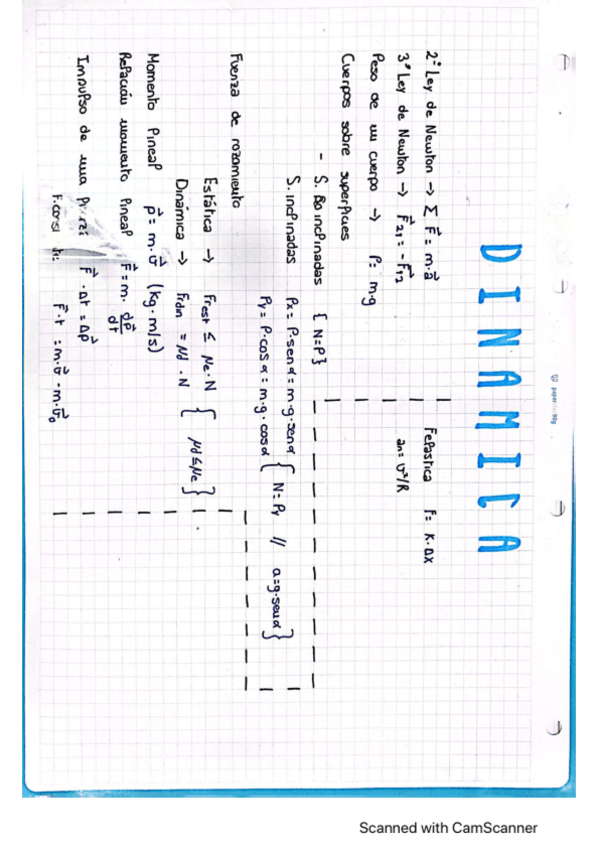 DINAMICA
2ª Ley de Newton → Σ F⃗ = m·a⃗
3ª Ley de Newton → F⃗₂₁ = -F⃗₁₂
Peso de un cuerpo → P = m·g
Cuerpos sobre superficies
- S. No inclinadas { N=P }
S. inclinadas Px = P·sen α = m·g·sen α
Py = P·cos α = m·g·cos α { N = Py // a=g·sen α }
Felastica F = K·Δx
an = v²/R
Fuerza de rozamiento
Estática → Frest ≤ μe·N
Dinámica → Frdin = μd·N { μd≤μe }
Momento lineal p⃗ = m·v⃗ (kg·m/s)
Relación momento lineal F⃗ = m· dp⃗/dt
Impulso de una F⃗·Δt = Δp⃗
F⃗·t = m·v⃗ - m·v⃗₀
Scanned with CamScanner